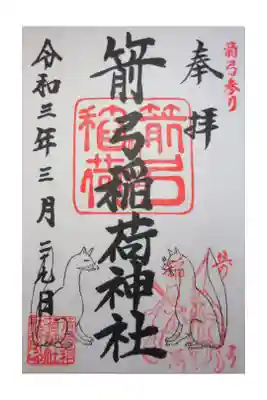 箭弓参り
奉拝
箭弓稲荷
箭弓稲荷神社
令和三年三月二十九日